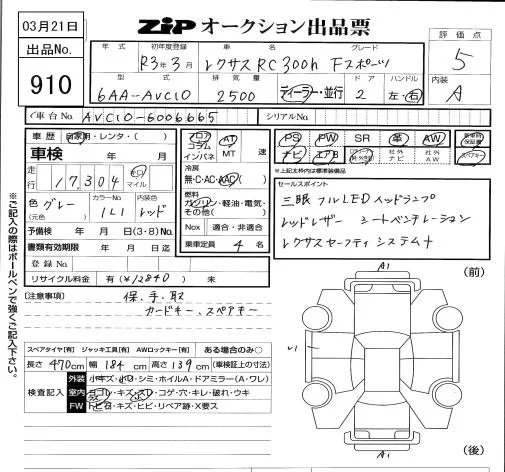 03月21日
ZIP オークション出品票
出品No.
910
年式 初年度登録 車名 グレード
R3年3月 レクサスRC300h Fスポーツ
評価点
5
内装
A
型式 排気量 ドア ハンドル
6AA-AVC10 2500 ディーラー・並行 2 左・右
車台No. AVC10-6006665 シリアルNo.
車歴 自家用・レンタ・( )
車検 年 月
走行 17,304 キロ マイル
色 グレー (元色) カラーNo. 1L1 内装色 レッド
予備検 年 月 日 (3・8)No.
書類有効期限 年 月 日迄
登録No.
リサイクル料金 有(¥12840) 未
フロア コラム インパネ AT MT 速
冷房 無・C・AC・AAC
燃料 ガソリン・軽油・電気・その他( )
Nox 適合・非適合
乗車定員 4 名
PS PW SR 革 AW 新車時保証書
ナビ エアB 社外ナビ 社外AW スペアキー
※上記太枠内は標準装備品
セールスポイント
三眼フルLEDヘッドランプ
レッドレザー シートベンチレーション
レクサスセーフティシステム+
(注意事項)
保、手、取
カードキー、スペアキー
スペアタイヤ[有] ジャッキ工具[有] AWロックキー[有] ある場合のみ○
長さ 470cm 幅 184cm 高さ 139cm (車検証上の寸法)
検査記入
外装 小キズ・小凹・シミ・ホイルA・ドアミラー(A・ワレ)
室内 ヨゴレ・キズ・スレ・コゲ・穴・キレ・破れ・ウキ
FW トビ石・キズ・ヒビ・リペア跡・X要ス
※ご記入の際はボールペンで強くご記入下さい。
A1
(前)
A1
(後)